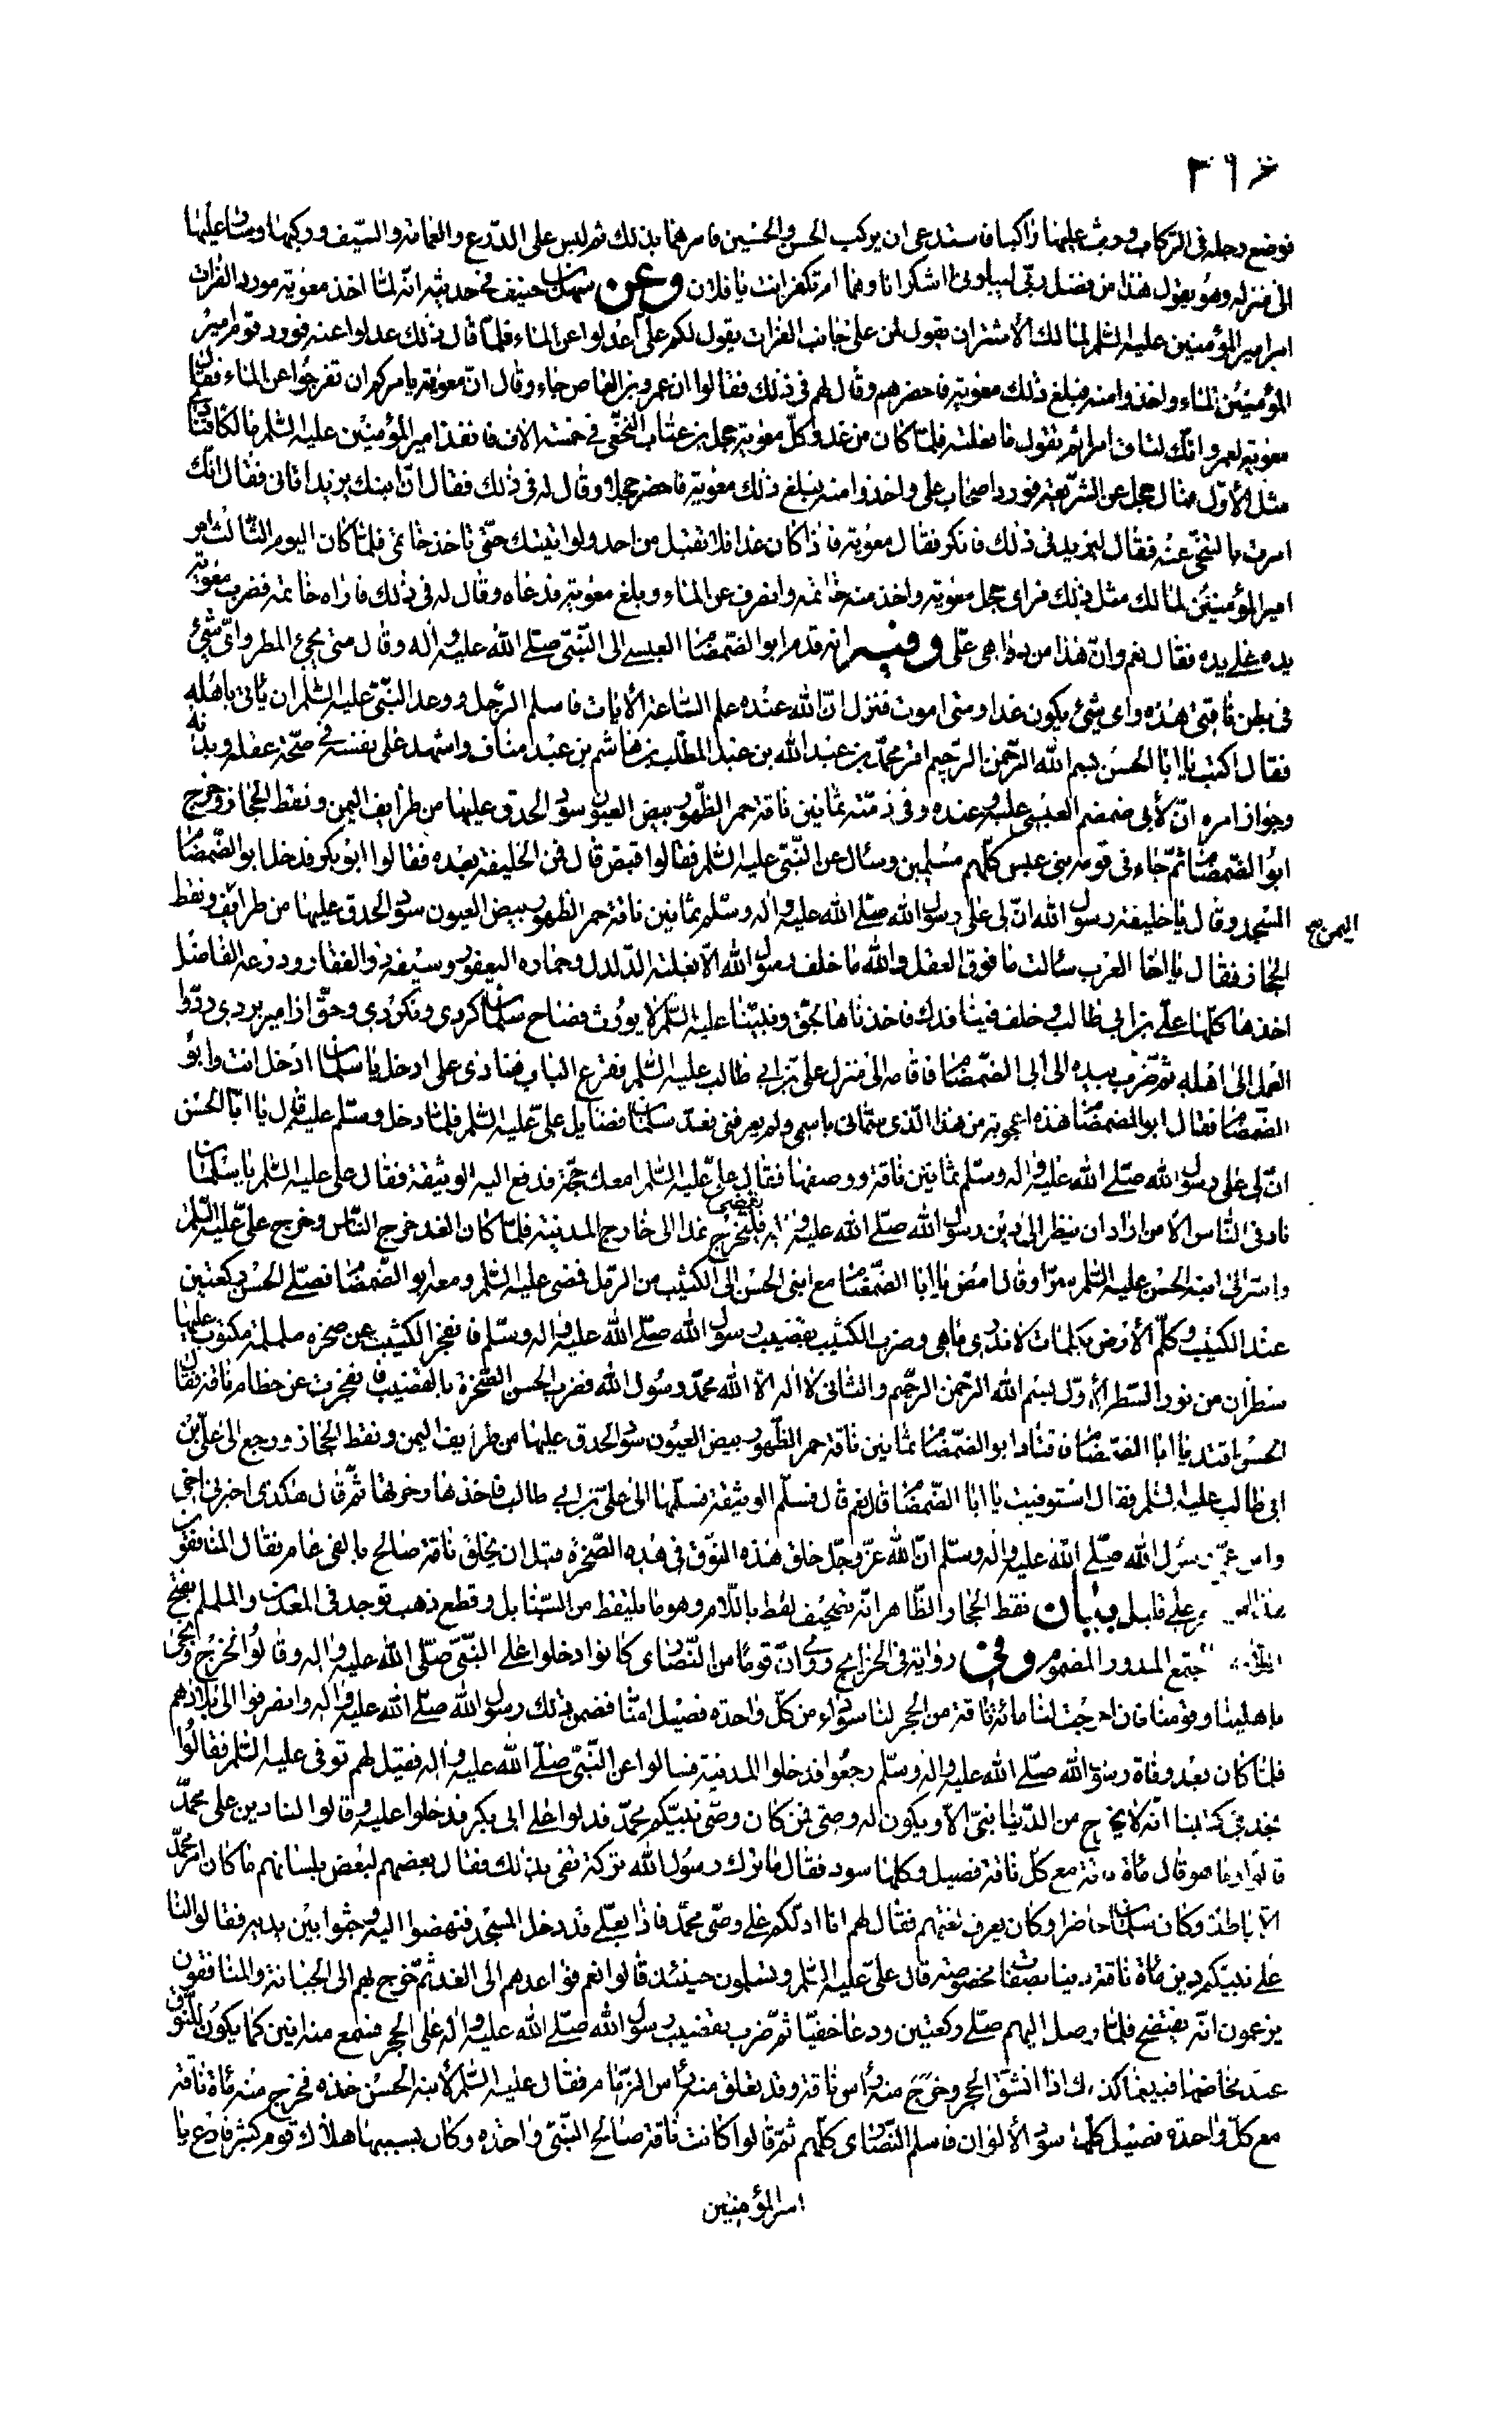 ٣٦٤
فوضع رجله في الركاب ووثب عليها راكبا فاستدعى ان يركب الحسن والحسين فامرهما بذلك ثم لبس علي الدرع والعمامة والسيف وركبها وسار عليها
الى منزله وهو يقول هذا من فضل ربي ليبلوني أاشكر انا وهما ام تكفر انت يا فلان وعن سهل بن حنيف في حديثه انه لما اخذ معوية مورد الفرات
امر امير المؤمنين عليه السلم لمالك الأشتر ان يقول لمن على جانب الفرات يقول لكم علي اعدلوا عن الماء فلما قال ذلك عدلوا عنه فورد قوم امير
المؤمنين الماء واخذوا منه فبلغ ذلك معوية فاحضرهم وقال لهم في ذلك فقالوا ان عمرو بن العاص جاء وقال ان معوية يامركم ان تفرجوا عن الماء فقال
معوية لعمرو انك لتاتي امرا ثم تقول ما فعلته فلما كان من غد وكل معوية حجل بن عتاب النخعي في خمسة الاف فانفذ امير المؤمنين عليه السلم مالكا فنادى
مثل الأول فمال حجل عن الشريعة فورد اصحاب علي واخذوا منه فبلغ ذلك معوية فاحضر حجلا وقال له في ذلك فقال ان ابنك يزيد اتاني فقال انك
امرت بالتنحي عنه فقال ليزيد في ذلك فانكر فقال معوية فاذا كان غدا فلا تقبل من احد ولو اتيتك حتى تاخذ خاتمي فلما كان اليوم الثالث امر
امير المؤمنين لمالك مثل ذلك فراى حجل معوية واخذ منه خاتمه وانصرف عن الماء وبلغ معوية فدعاه وقال له في ذلك فاراه خاتمه فضرب معوية
يده على يده فقال نعم وان هذا من دواهي علي وفيه انه قدم ابو الضمضام العبسي الى النبي صلى الله عليه واله وقال متى يجيئ المطر واي شيئ
في بطن ناقتي هذه واي شيئ يكون غدا ومتى اموت فنزل ان الله عنده علم الساعة الأيات فاسلم الرجل ووعد النبي عليه السلم ان ياتي باهله
فقال اكتب يا ابا الحسن بسم الله الرحمن الرحيم اقر محمد بن عبد الله بن عبد المطلب بن هاشم بن عبد مناف واشهد على نفسه في صحة عقله وبدنه
وجواز امره ان لأبي ضمضم العبسي عليه وعنده وفي ذمته ثمانين ناقة حمر الظهور بيض العيون سود الحدق عليها من طرايف اليمن ونقط الحجاز وخرج
ابو الضمضام ثم جاء في قومه بني عبس كلهم مسلمين وسال عن النبي عليه السلم فقالوا قبض قال فمن الخليفة بعده فقالوا ابو بكر فدخل ابو الضمضام
المسجد وقال يا خليفة رسول الله ان لي على رسول الله صلى الله عليه واله وسلم ثمانين ناقة حمر الظهور بيض العيون سود الحدق عليها من طرايف ونقط
اليمن صح
الحجاز فقال يا اخا العرب سالت ما فوق العقل والله ما خلف رسول الله الا بغلته الدلدل وحماره اليعفور وسيفه ذو الفقار ودرعه الفاضل
اخذها كلها علي بن ابي طالب وخلف فينا فدك فاخذناها بحق ونبينا عليه السلم لا يورث فصاح سلمان كردي ونكردي وحق از امير بردي ردوا
العمل الى اهله ثم ضرب بيده الى ابي الضمضام فاقامه الى منزل علي بن ابي طالب عليه السلم فقرع الباب فنادى علي ادخل يا سلمان ادخل انت وابو
الضمضام فقال ابو الضمضام هذه اعجوبة من هذا الذي سماني باسمي ولم يعرفني فعد سلمان فضايل علي عليه السلم فلما دخل وسلم عليه قال يا ابا الحسن
ان لي على رسول الله صلى الله عليه واله وسلم ثمانين ناقة ووصفها فقال علي عليه السلم امعك حجة فدفع اليه الوثيقة فقال علي عليه السلم يا سلمان
ناد في الناس الا من اراد ان ينظر الى دين رسول الله صلى الله عليه واله فليخرج غدا الى خارج المدينة فلما كان الغد خرج الناس وخرج علي عليه السلم
واسر الى ابنه الحسن عليه السلم سرا وقال امض يا ابا الضمضام مع ابني الحسن الى الكثيب من الرمل فمضى عليه السلم ومعه ابو الضمضام فصلى الحسن ركعتين
عند الكثيب وكلم الأرض بكلمات لا ندري ما هي وضرب الكثيب بقضيب رسول الله صلى الله عليه واله وسلم فانفجر الكثيب عن صخرة ململمة مكتوب عليها
سطران من نور السطر الأول بسم الله الرحمن الرحيم والثاني لا اله الا الله محمد رسول الله فضرب الحسن الصخرة بالقضيب فانفجرت عن خطام ناقة فقال
الحسن اقتد يا ابا الضمضام فاقتاد ابو الضمضام ثمانين ناقة حمر الظهور بيض العيون سود الحدق عليها من طرايف اليمن ونقط الحجاز ورجع الى علي بن
ابي طالب عليه السلم فقال استوفيت يا ابا الضمضام قال نعم قال فسلم الوثيقة فسلمها الى علي بن ابي طالب فاخذها وخرقها ثم قال هكذى اخبرني اخي
وابن عمي رسول الله صلى الله عليه واله وسلم ان الله عز وجل خلق هذه النوق في هذه الصخرة قبل ان يخلق ناقة صالح بالفي عام فقال المنافقون
هذا من سحر علي قليل بيان نقط الحجاز والظاهر انه تصحيف لقط باللام وهو ما يلتقط من السنابل وقطع ذهب توجد في المعدن والململم بفتح
المجتمع المدور المضموم وفي رواية في الخرايج وروي ان قوما من النصارى كانوا دخلوا على النبي صلى الله عليه واله وقالوا نخرج ونجيئ
باهلينا وقومنا فان اخرجت لنا مائة ناقة من الحجر لنا سوداء من كل واحدة فصيل امنا فضمن ذلك رسول الله صلى الله عليه واله وانصرفوا الى بلادهم
فلما كان بعد وفاة رسول الله صلى الله عليه واله وسلم رجعوا فدخلوا المدينة فسالوا عن النبي صلى الله عليه واله فقيل لهم توفي عليه السلم فقالوا
نجد في كتابنا انه لا يخرج من الدنيا نبي الا ويكون له وصي فمن كان وصي نبيكم محمد فدلوا على ابي بكر فدخلوا عليه وقالوا لنا دين على محمد
قالوا وما هو قال مائة ناقة مع كل ناقة فصيل وكلها سود فقال ما ترك رسول الله تركة تفي بذلك فقال بعضهم لبعض بلسانهم ما كان امر محمد
الا باطلا وكان سلمان حاضرا وكان يعرف لغتهم فقال لهم انا ادلكم على وصي محمد فاذا بعلي قد دخل المسجد فنهضوا اليه وجثوا بين يديه فقالوا لنا
على نبيكم دين مائة ناقة دينا بصفات مخصوصة قال علي عليه السلم وتسلمون حينئذ قالوا نعم فواعدهم الى الغد ثم خرج بهم الى الجبانة والمنافقون
يزعمون انه يفتضح فلما وصل اليهم صلى ركعتين ودعا خفيا ثم ضرب بقضيب رسول الله صلى الله عليه واله على الحجر فسمع منه انين كما يكون للنوق
عند مخاضها فبينما كذلك اذا انشق الحجر وخرج منه راس ناقة وقد تعلق منه راس الزمام فقال عليه السلم لأبنه الحسن خذه فخرج منه مائة ناقة
مع كل واحدة فصيل كلها سود الألوان فاسلم النصارى كلهم ثم قالوا كانت ناقة صالح النبي واحدة وكان بسببها هلاك قوم كثير فادع يا
امير المؤمنين